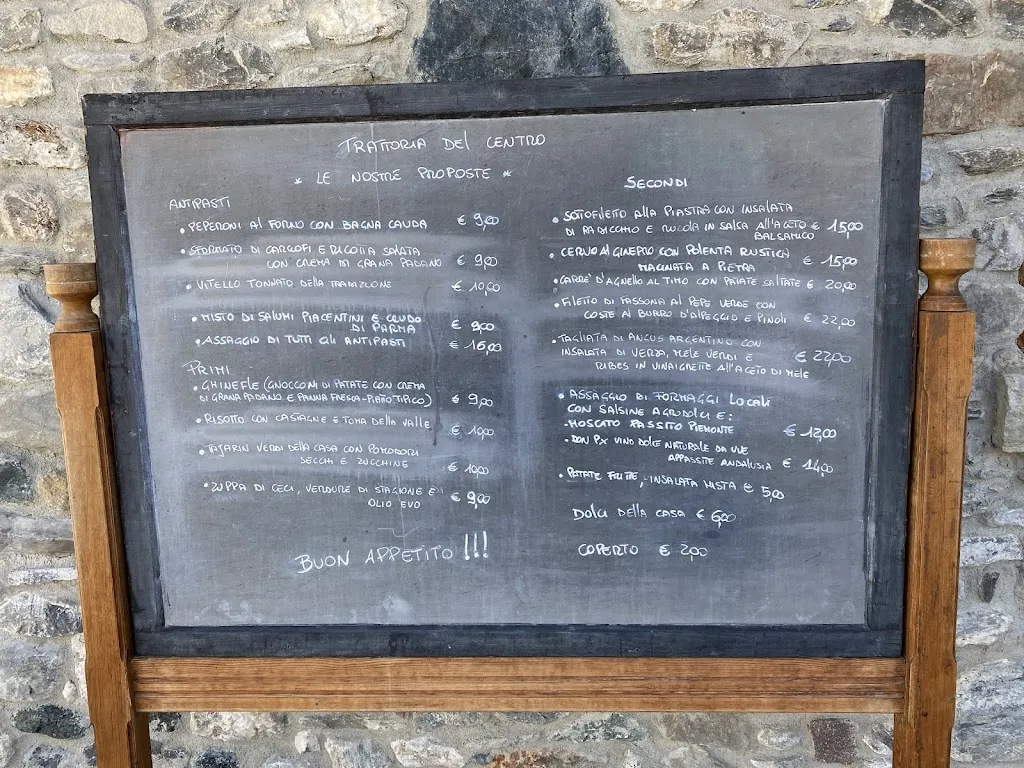 TRATTORIA DEL CENTRO
* LE NOSTRE PROPOSTE *
ANTIPASTI
• PEPERONI AL FORNO CON BAGNA CAUDA € 9,00
• SFORMATO DI CARCIOFI E RICOTTA SALATA
CON CREMA DI GRANA PADANO € 9,00
• VITELLO TONNATO DELLA TRADIZIONE € 10,00
• MISTO DI SALUMI PIACENTINI E CRUDO
DI PARMA € 9,00
• ASSAGGIO DI TUTTI GLI ANTIPASTI € 16,00
PRIMI
• GHINEFLE (GNOCCONI DI PATATE CON CREMA
DI GRANA PADANO E PANNA FRESCA - PIATTO TIPICO) € 9,00
• RISOTTO CON CASTAGNE E TOMA DELLA VALLE € 10,00
• TAJARIN VERDI DELLA CASA CON POMODORI
SECCHI E ZUCCHINE € 10,00
• ZUPPA DI CECI, VERDURE DI STAGIONE E
OLIO EVO € 9,00
BUON APPETITO !!!
SECONDI
• SOTTOFILETTO ALLA PIASTRA CON INSALATA
DI RADICCHIO E RUCOLA IN SALSA ALL'ACETO € 15,00
BALSAMICO
• CERVO AL GINEPRO CON POLENTA RUSTICA
MACINATA A PIETRA € 15,00
• CARRÉ D'AGNELLO AL TIMO CON PATATE SALTATE € 20,00
• FILETTO DI FASSONA AL PEPE VERDE CON
COSTE AL BURRO D'ALPEGGIO E PINOLI € 22,00
• TAGLIATA DI ANGUS ARGENTINO CON
INSALATA DI VERZA, MELE VERDI E € 22,00
RIBES IN VINAIGRETTE ALL'ACETO DI MELE
• ASSAGGIO DI FORMAGGI LOCALI
CON SALSINE AGRODOLCI E:
- MOSCATO PASSITO PIEMONTE € 12,00
- DON PX VINO DOLCE NATURALE DA UVE
APPASSITE ANDALUSIA € 14,00
• PATATE FRITTE, - INSALATA MISTA € 5,00
DOLCI DELLA CASA € 6,00
COPERTO € 2,00